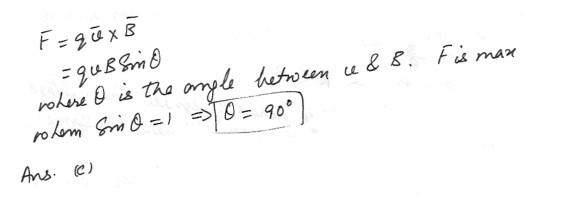 F̅ = q u̅ × B̅
= q u B Sin θ
where θ is the angle between u & B. F is max
when Sin θ = 1 ⇒ θ = 90°
Ans. (c)